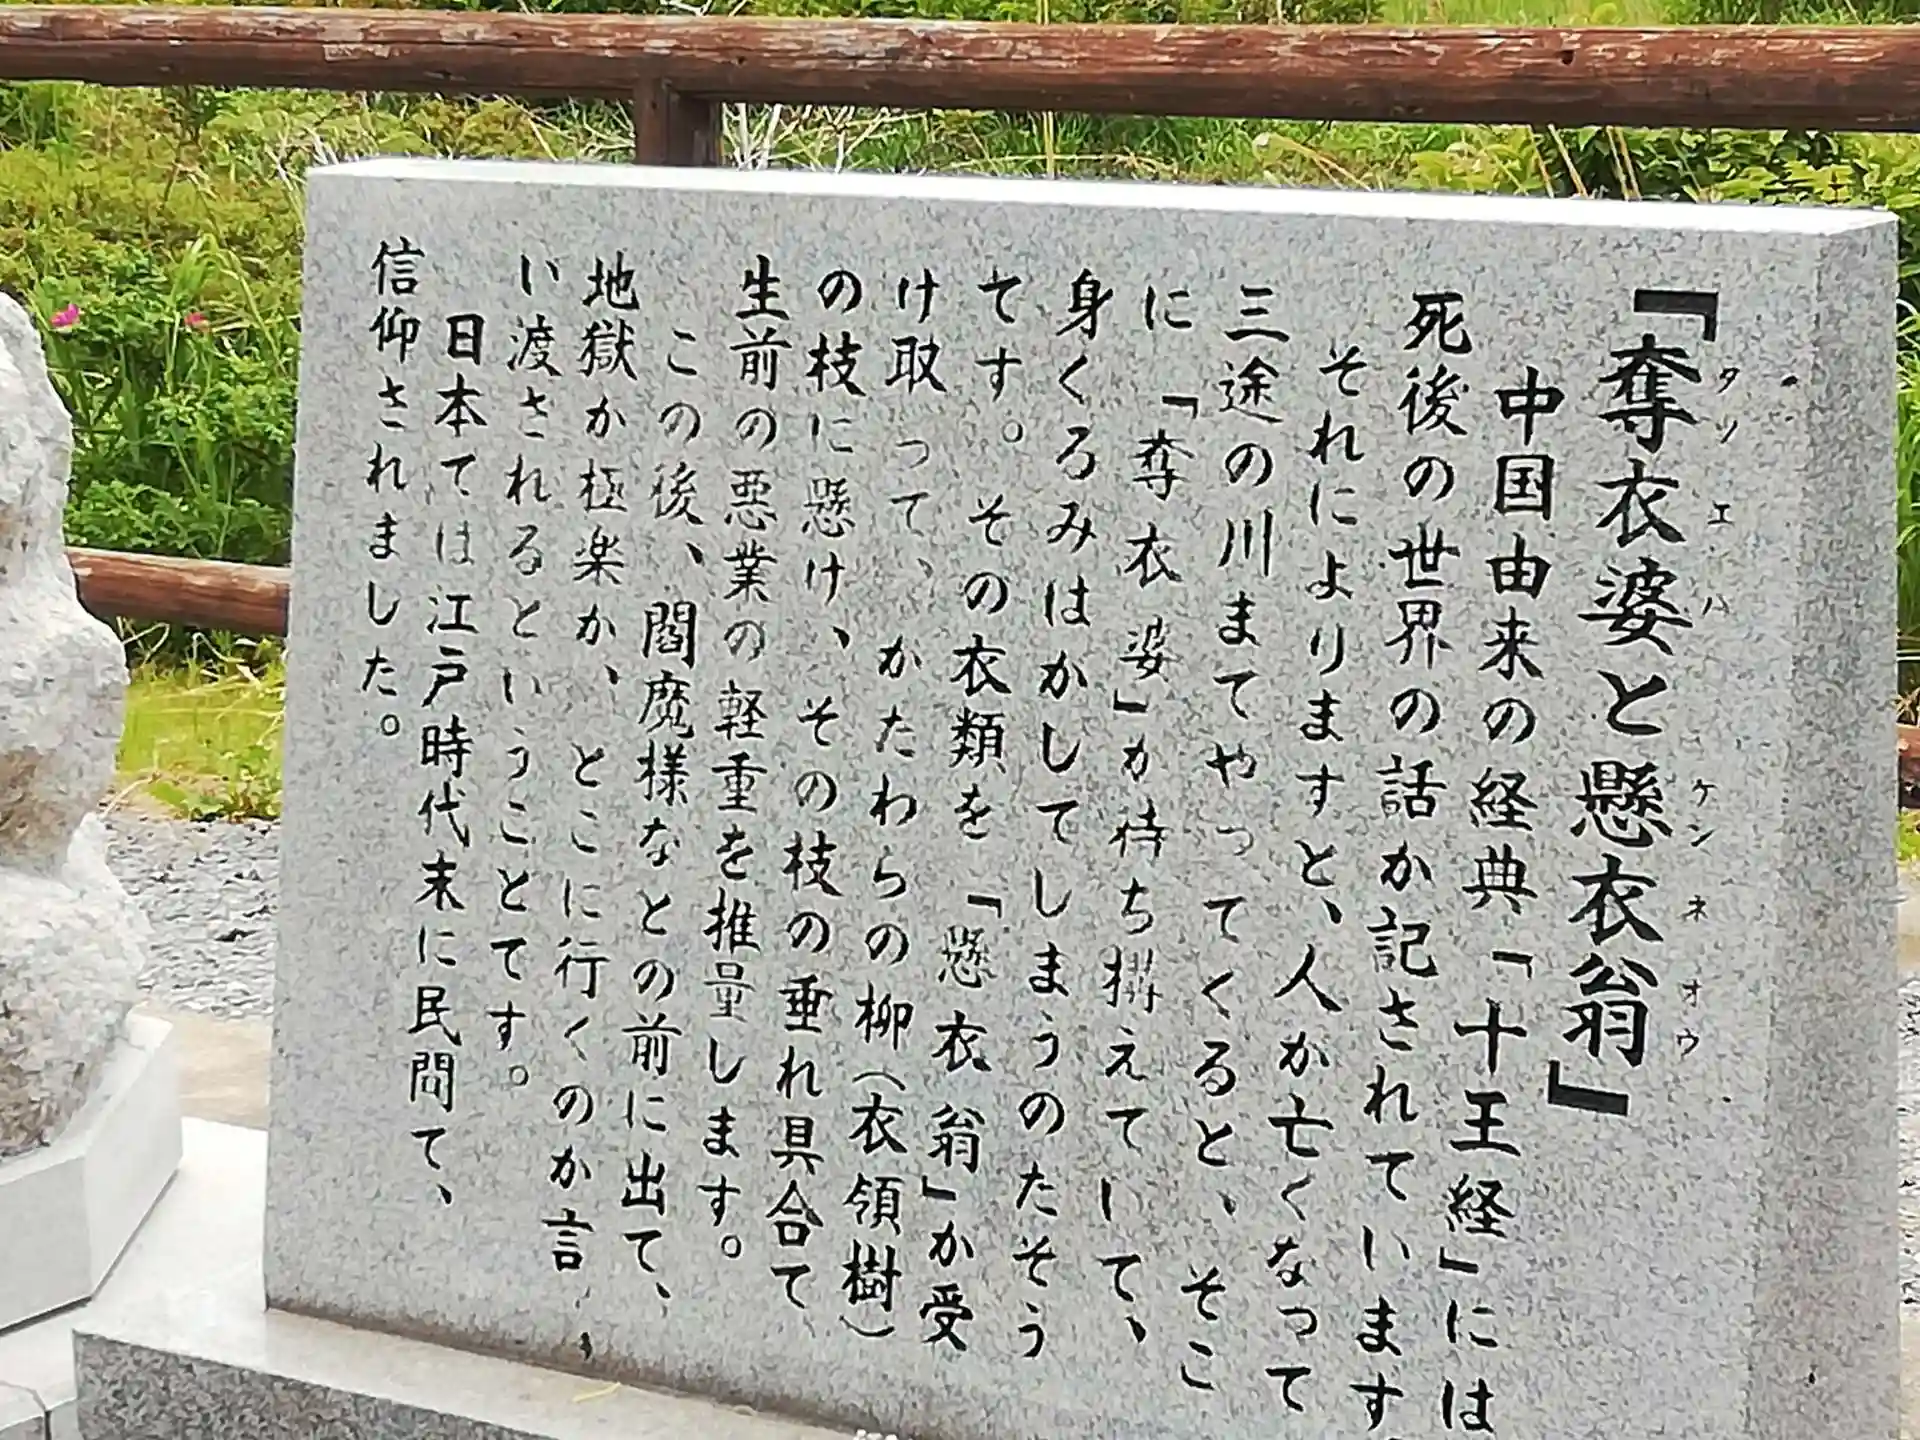 「奪衣婆と懸衣翁」
タツエハ ケンネオウ
中国由来の経典「十王経」には
死後の世界の話か記されています
それによりますと、人か亡くなって
三途の川まてやってくると、そこ
に「奪衣婆」か待ち構えていて、
身くるみはかしてしまうのたそう
てす。その衣類を「懸衣翁」か受
け取って、かたわらの柳（衣領樹）
の枝に懸け、その枝の垂れ具合て
生前の悪業の軽重を推量します。
この後、閻魔様なとの前に出て、
地獄か極楽か、とこに行くのか言
い渡されるということてす。
日本ては江戸時代末に民間て、
信仰されました。